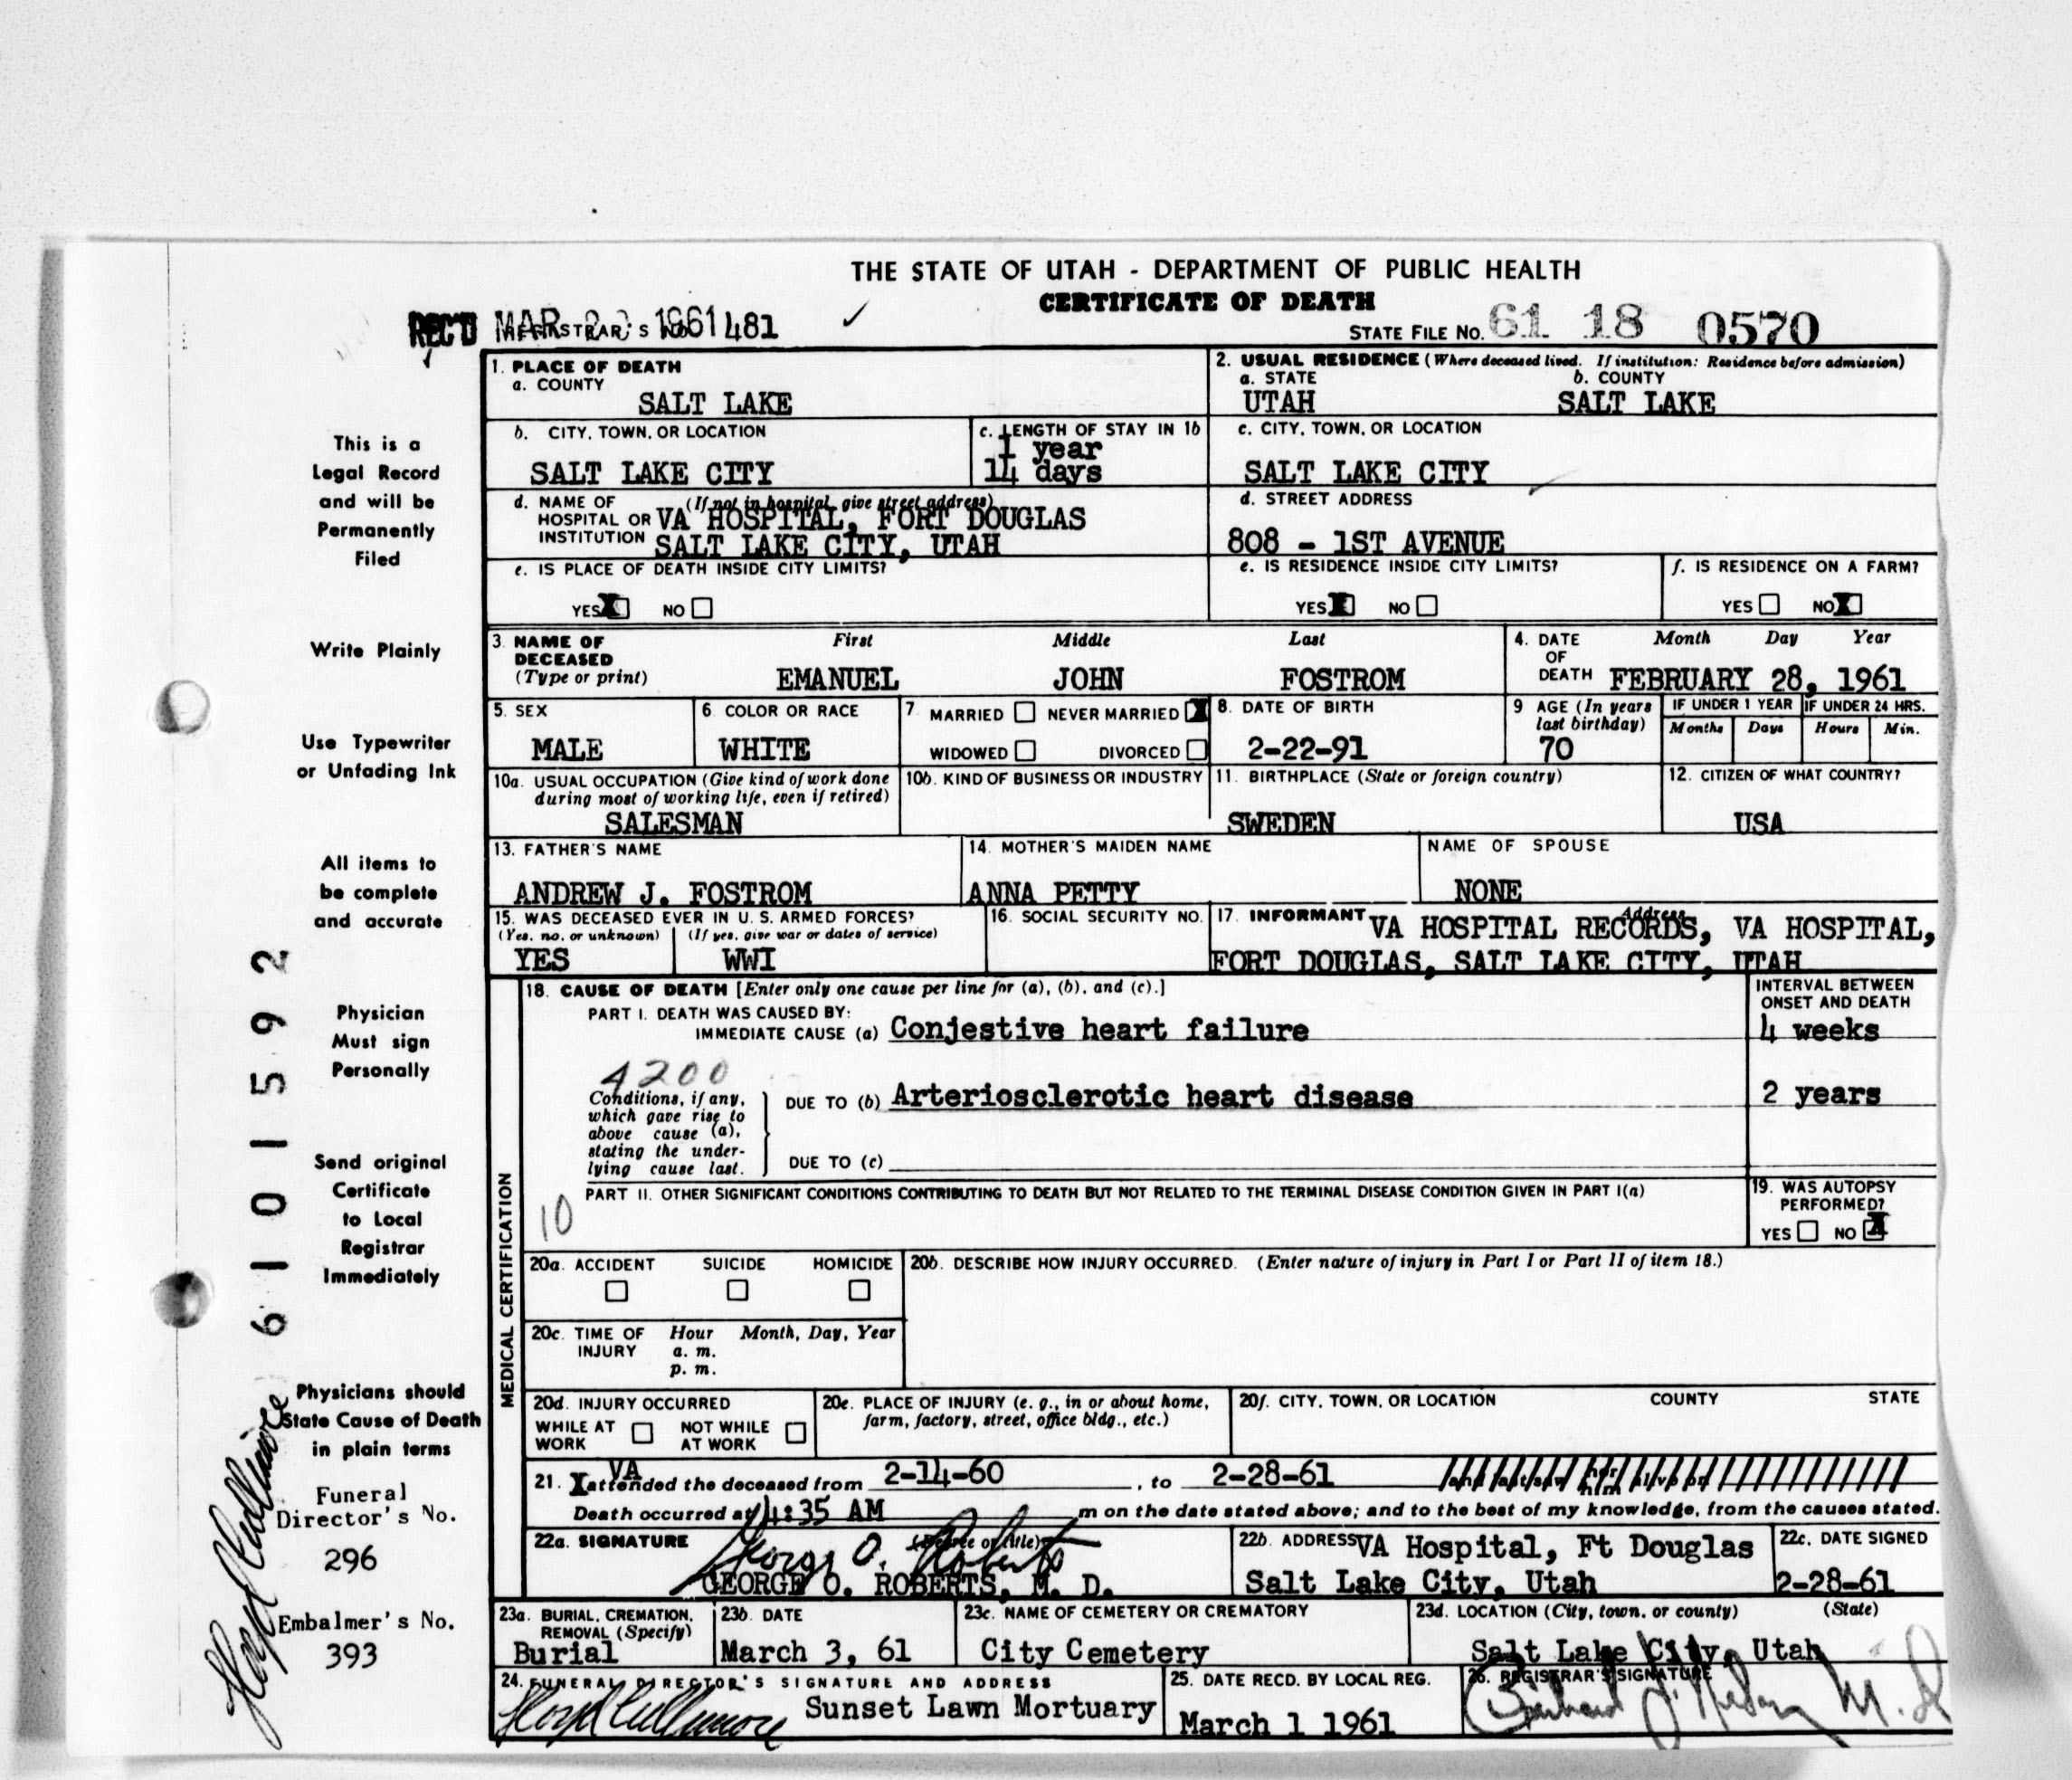 THE STATE OF UTAH - DEPARTMENT OF PUBLIC HEALTH
CERTIFICATE OF DEATH
REC'D MAR 1961 REGISTRAR'S NO. 481
STATE FILE NO. 61 18 0570
1. PLACE OF DEATH
a. COUNTY
SALT LAKE
2. USUAL RESIDENCE (Where deceased lived. If institution: Residence before admission)
a. STATE b. COUNTY
UTAH SALT LAKE
b. CITY, TOWN, OR LOCATION
SALT LAKE CITY
c. LENGTH OF STAY IN 1b
1 year
14 days
c. CITY, TOWN, OR LOCATION
SALT LAKE CITY
d. NAME OF (If not in hospital, give street address)
HOSPITAL OR VA HOSPITAL, FORT DOUGLAS
INSTITUTION SALT LAKE CITY, UTAH
d. STREET ADDRESS
808 - 1ST AVENUE
e. IS PLACE OF DEATH INSIDE CITY LIMITS?
YES X NO
e. IS RESIDENCE INSIDE CITY LIMITS?
YES X NO
f. IS RESIDENCE ON A FARM?
YES NO X
3. NAME OF DECEASED (Type or print)
First Middle Last
EMANUEL JOHN FOSTROM
4. DATE OF DEATH
Month Day Year
FEBRUARY 28, 1961
5. SEX
MALE
6. COLOR OR RACE
WHITE
7. MARRIED NEVER MARRIED X
WIDOWED DIVORCED
8. DATE OF BIRTH
2-22-91
9 AGE (In years last birthday)
70
IF UNDER 1 YEAR IF UNDER 24 HRS.
Months Days Hours Min.
10a. USUAL OCCUPATION (Give kind of work done
during most of working life, even if retired)
SALESMAN
10b. KIND OF BUSINESS OR INDUSTRY
11. BIRTHPLACE (State or foreign country)
SWEDEN
12. CITIZEN OF WHAT COUNTRY?
USA
13. FATHER'S NAME
ANDREW J. FOSTROM
14. MOTHER'S MAIDEN NAME
ANNA PETTY
NAME OF SPOUSE
NONE
15. WAS DECEASED EVER IN U. S. ARMED FORCES?
(Yes, no, or unknown) (If yes, give war or dates of service)
YES WWI
16. SOCIAL SECURITY NO.
17. INFORMANT Address
VA HOSPITAL RECORDS, VA HOSPITAL,
FORT DOUGLAS, SALT LAKE CITY, UTAH
MEDICAL CERTIFICATION
18. CAUSE OF DEATH [Enter only one cause per line for (a), (b), and (c).]
INTERVAL BETWEEN
ONSET AND DEATH
PART I. DEATH WAS CAUSED BY:
IMMEDIATE CAUSE (a) Conjestive heart failure
4 weeks
4200
Conditions, if any,
which gave rise to
above cause (a),
stating the under-
lying cause last.
DUE TO (b) Arteriosclerotic heart disease
2 years
DUE TO (c)
PART II. OTHER SIGNIFICANT CONDITIONS CONTRIBUTING TO DEATH BUT NOT RELATED TO THE TERMINAL DISEASE CONDITION GIVEN IN PART I(a)
10
19. WAS AUTOPSY
PERFORMED?
YES NO X
20a. ACCIDENT SUICIDE HOMICIDE
20b. DESCRIBE HOW INJURY OCCURRED. (Enter nature of injury in Part I or Part II of item 18.)
20c. TIME OF INJURY Hour Month, Day, Year
a. m.
p. m.
20d. INJURY OCCURRED
WHILE AT WORK NOT WHILE AT WORK
20e. PLACE OF INJURY (e. g., in or about home,
farm, factory, street, office bldg., etc.)
20f. CITY, TOWN, OR LOCATION COUNTY STATE
21. VA attended the deceased from 2-14-60, to 2-28-61 and last saw her him alive on
Death occurred at 4:35 AM m on the date stated above; and to the best of my knowledge, from the causes stated.
22a. SIGNATURE (Degree or title)
George O. Roberts
GEORGE O. ROBERTS, M. D.
22b. ADDRESS VA Hospital, Ft Douglas
Salt Lake City, Utah
22c. DATE SIGNED
2-28-61
23a. BURIAL, CREMATION,
REMOVAL (Specify)
Burial
23b. DATE
March 3, 61
23c. NAME OF CEMETERY OR CREMATORY
City Cemetery
23d. LOCATION (City, town, or county) (State)
Salt Lake City, Utah
24. FUNERAL DIRECTOR'S SIGNATURE AND ADDRESS
Sunset Lawn Mortuary
25. DATE RECD. BY LOCAL REG.
March 1 1961
26. REGISTRAR'S SIGNATURE
M. D
This is a
Legal Record
and will be
Permanently
Filed
Write Plainly
Use Typewriter
or Unfading Ink
All items to
be complete
and accurate
Physician
Must sign
Personally
Send original
Certificate
to Local
Registrar
Immediately
Physicians should
State Cause of Death
in plain terms
Funeral
Director's No.
296
Embalmer's No.
393
6101592